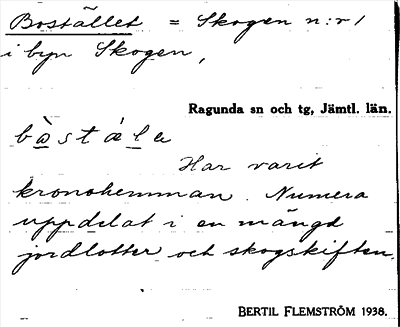 Bostället = Skogen n:r 1
i byn Skogen,
Ragunda sn och tg, Jämtl. län.
bòstálə
Har varit
kronohemman. Numera
uppdelat i en mängd
jordlotter och skogskiften.
BERTIL FLEMSTRÖM 1938.